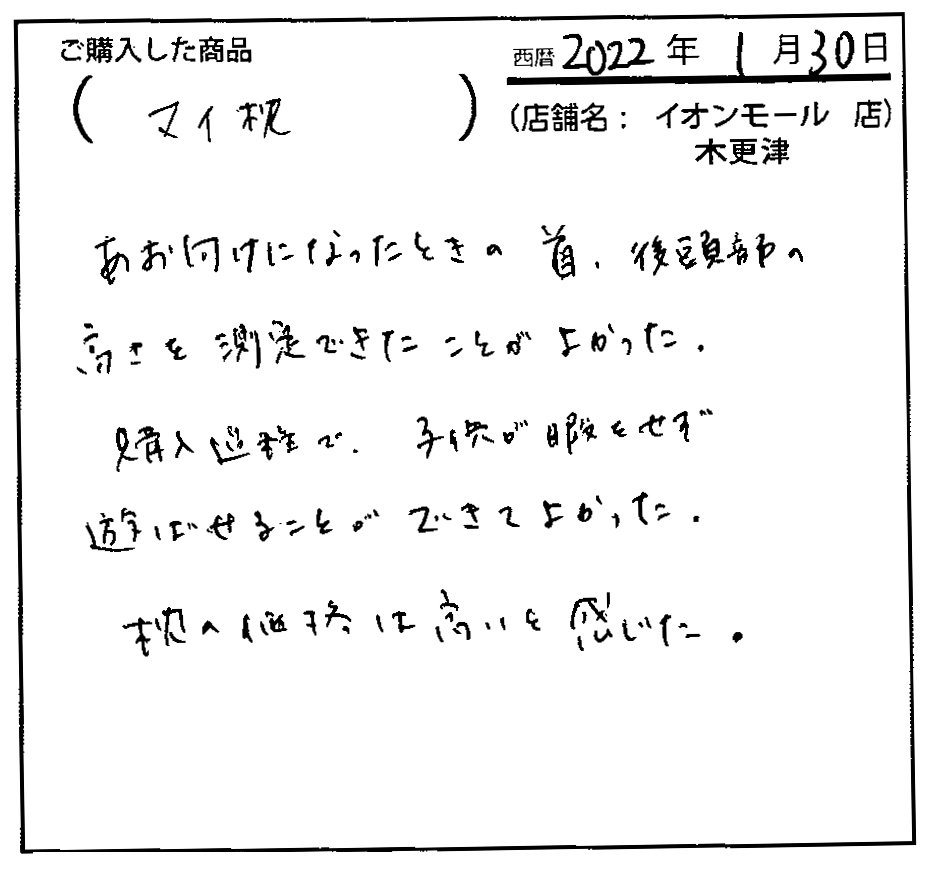 ご購入した商品
西暦 2022 年 1 月 30 日
( マイ枕 )
(店舗名: イオンモール 店)
木更津
あお付けになったときの首、後頭部の
高さを測定できたことがよかった。
購入過程で、子供が暇をせず
遊ばせることができてよかった。
枕の価格は高いと感じた。